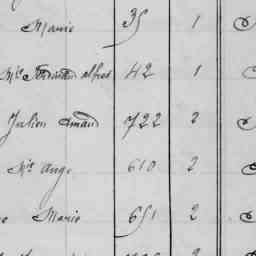 Marie 35 1
alfred 42 1
Julien Amand 722 2
Mie Ange 610 2
Marie 651 2